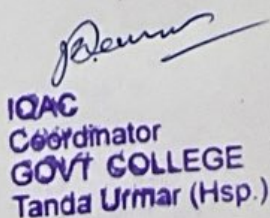 IQAC
Coordinator
GOVT COLLEGE
Tanda Urmar (Hsp.)